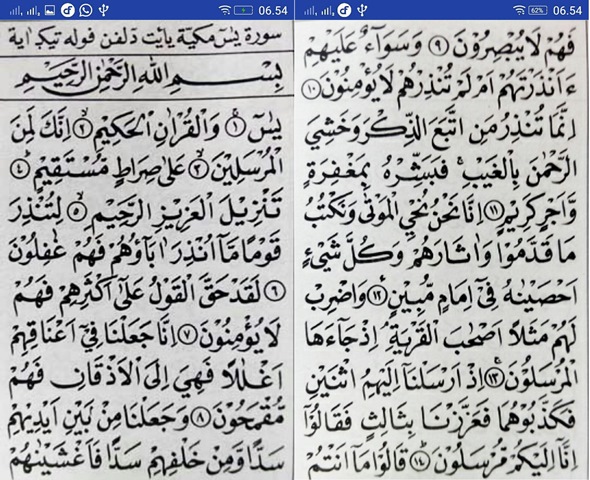 06.54
سورة يٰسٓ مكيّة يأيت دلفن فوله تيݢ اية
بِسْمِ اللّٰهِ الرَّحْمٰنِ الرَّحِيْمِ
يٰسٓ ﴿١﴾ وَالْقُرْاٰنِ الْحَكِيْمِ ﴿٢﴾ اِنَّكَ لَمِنَ
الْمُرْسَلِيْنَ ﴿٣﴾ عَلٰى صِرَاطٍ مُّسْتَقِيْمٍ ﴿٤﴾
تَنْزِيْلَ الْعَزِيْزِ الرَّحِيْمِ ﴿٥﴾ لِتُنْذِرَ
قَوْمًا مَّآ اُنْذِرَ اٰبَآؤُهُمْ فَهُمْ غٰفِلُوْنَ
﴿٦﴾ لَقَدْ حَقَّ الْقَوْلُ عَلٰٓى اَكْثَرِهِمْ فَهُمْ
لَا يُؤْمِنُوْنَ ﴿٧﴾ اِنَّا جَعَلْنَا فِيْٓ اَعْنَاقِهِمْ
اَغْلٰلًا فَهِيَ اِلَى الْاَذْقَانِ فَهُمْ
مُّقْمَحُوْنَ ﴿٨﴾ وَجَعَلْنَا مِنْ بَيْنِ اَيْدِيْهِمْ
سَدًّا وَّمِنْ خَلْفِهِمْ سَدًّا فَاَغْشَيْنٰهُمْ
62% 06.54
فَهُمْ لَا يُبْصِرُوْنَ ﴿٩﴾ وَسَوَآءٌ عَلَيْهِمْ
ءَاَنْذَرْتَهُمْ اَمْ لَمْ تُنْذِرْهُمْ لَا يُؤْمِنُوْنَ ﴿١٠﴾
اِنَّمَا تُنْذِرُ مَنِ اتَّبَعَ الذِّكْرَ وَخَشِيَ
الرَّحْمٰنَ بِالْغَيْبِ فَبَشِّرْهُ بِمَغْفِرَةٍ
وَّاَجْرٍ كَرِيْمٍ ﴿١١﴾ اِنَّا نَحْنُ نُحْيِ الْمَوْتٰى وَنَكْتُبُ
مَا قَدَّمُوْا وَاٰثَارَهُمْ وَكُلَّ شَيْءٍ
اَحْصَيْنٰهُ فِيْٓ اِمَامٍ مُّبِيْنٍ ﴿١٢﴾ وَاضْرِبْ
لَهُمْ مَّثَلًا اَصْحٰبَ الْقَرْيَةِ اِذْ جَآءَهَا
الْمُرْسَلُوْنَ ﴿١٣﴾ اِذْ اَرْسَلْنَآ اِلَيْهِمُ اثْنَيْنِ
فَكَذَّبُوْهُمَا فَعَزَّزْنَا بِثَالِثٍ فَقَالُوْٓا
اِنَّآ اِلَيْكُمْ مُّرْسَلُوْنَ ﴿١٤﴾ قَالُوْا مَآ اَنْتُمْ